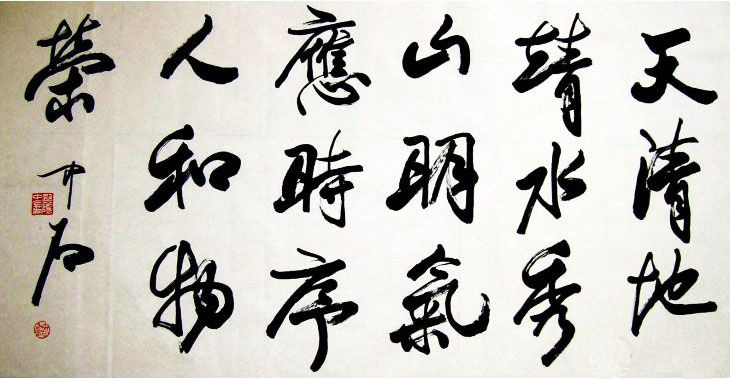 天清地
靖水秀
山明氣
應時序
人和物
榮
中石